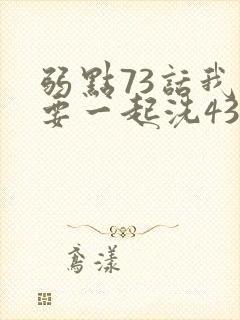 弱點73話我
要一起洗43
鳶漾